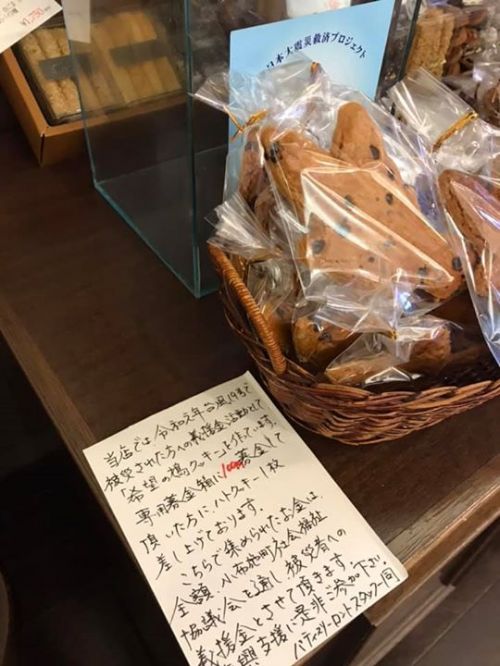 ¥1,750
日本大震災救済プロジェクト
当店では令和元年台風19号で
被災された方への義援金活動として
「希望の鳩クッキー」を作っています。
専用募金箱に100円募金して
頂いた方に、ハトクッキー1枚
差し上げております。
こちらで集められたお金は、
全額、小布施町社会福祉
協議会を通し被災者への
義援金とさせて頂きます
支援に是非ご参加下さい
パティスリーロントスタッフ一同